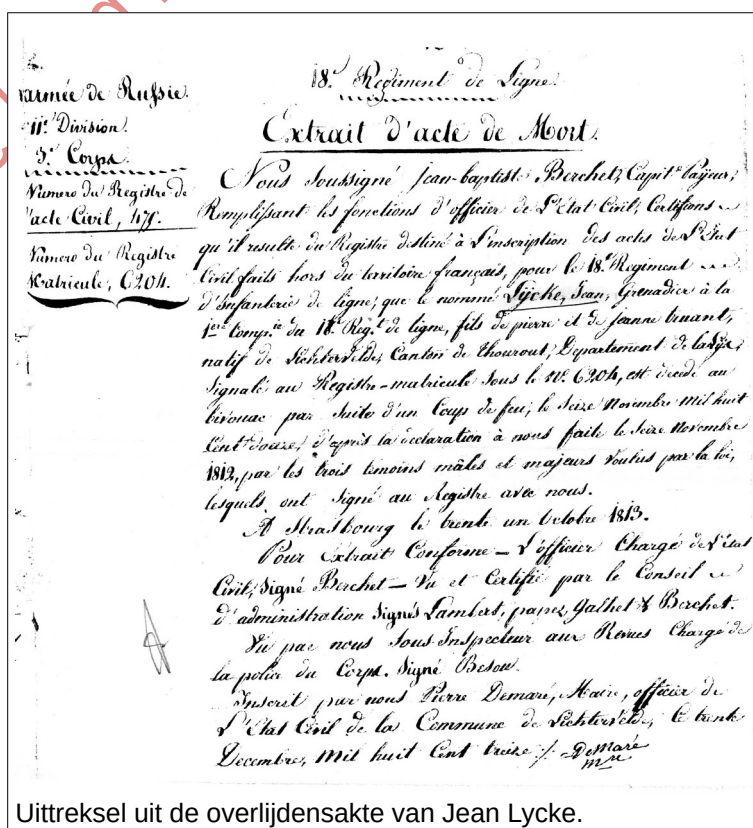 armée de Russie.
11.e Division.
3.e Corps.
Numero du Registre de
l'acte Civil, 478.
Numero du Registre
Matricule, 6204.
18.e Regiment de Ligne.
Extrait d'acte de Mort.
Nous Soussigné Jean-baptiste Berchet, Capit.e Payeur,
Remplissant les fonctions d'officier de L'Etat Civil, Certifions
qu'il resulte du Registre destiné à L'inscription des actes de L'Etat
Civil faits hors du territoire français, pour le 18.e Regiment
d'Infanterie de ligne, que le nommé Lÿcke, Jean, Grenadier à la
1ere Comp.ie du 18.e Reg.t de ligne, fils de pierre et de jeanne truant,
natif de Lichtervelde, Canton de Thourout, Departement de la Lys,
Signalé au Registre-matricule sous le N.o 6204, est decedé au
bivouac par suite d'un Coup de feu, le Seize Novembre Mil huit
Cent douze, d'après la declaration à nous faite le Seize Novembre
1812, par les trois temoins mâles et majeurs Voulus par la loi,
lesquels ont signé au Registre avec nous.
A Strasbourg le trente un Octobre 1813.
Pour Extrait Conforme – L'officier Chargé de l'état
Civil, Signé Berchet – Vu et Certifié par le Conseil
d'administration Signés Lambert, papez, Galhet & Berchet.
Vu par nous Sous-Inspecteur aux Revues Chargé de
la police du Corps. Signé Besou.
Inscrit par nous Pierre Demaré, Maire, officier de
L'Etat Civil de la Commune de Lichtervelde, le trente
Decembre, Mil huit Cent treize ./. DeMaré
mre
Uittreksel uit de overlijdensakte van Jean Lycke.